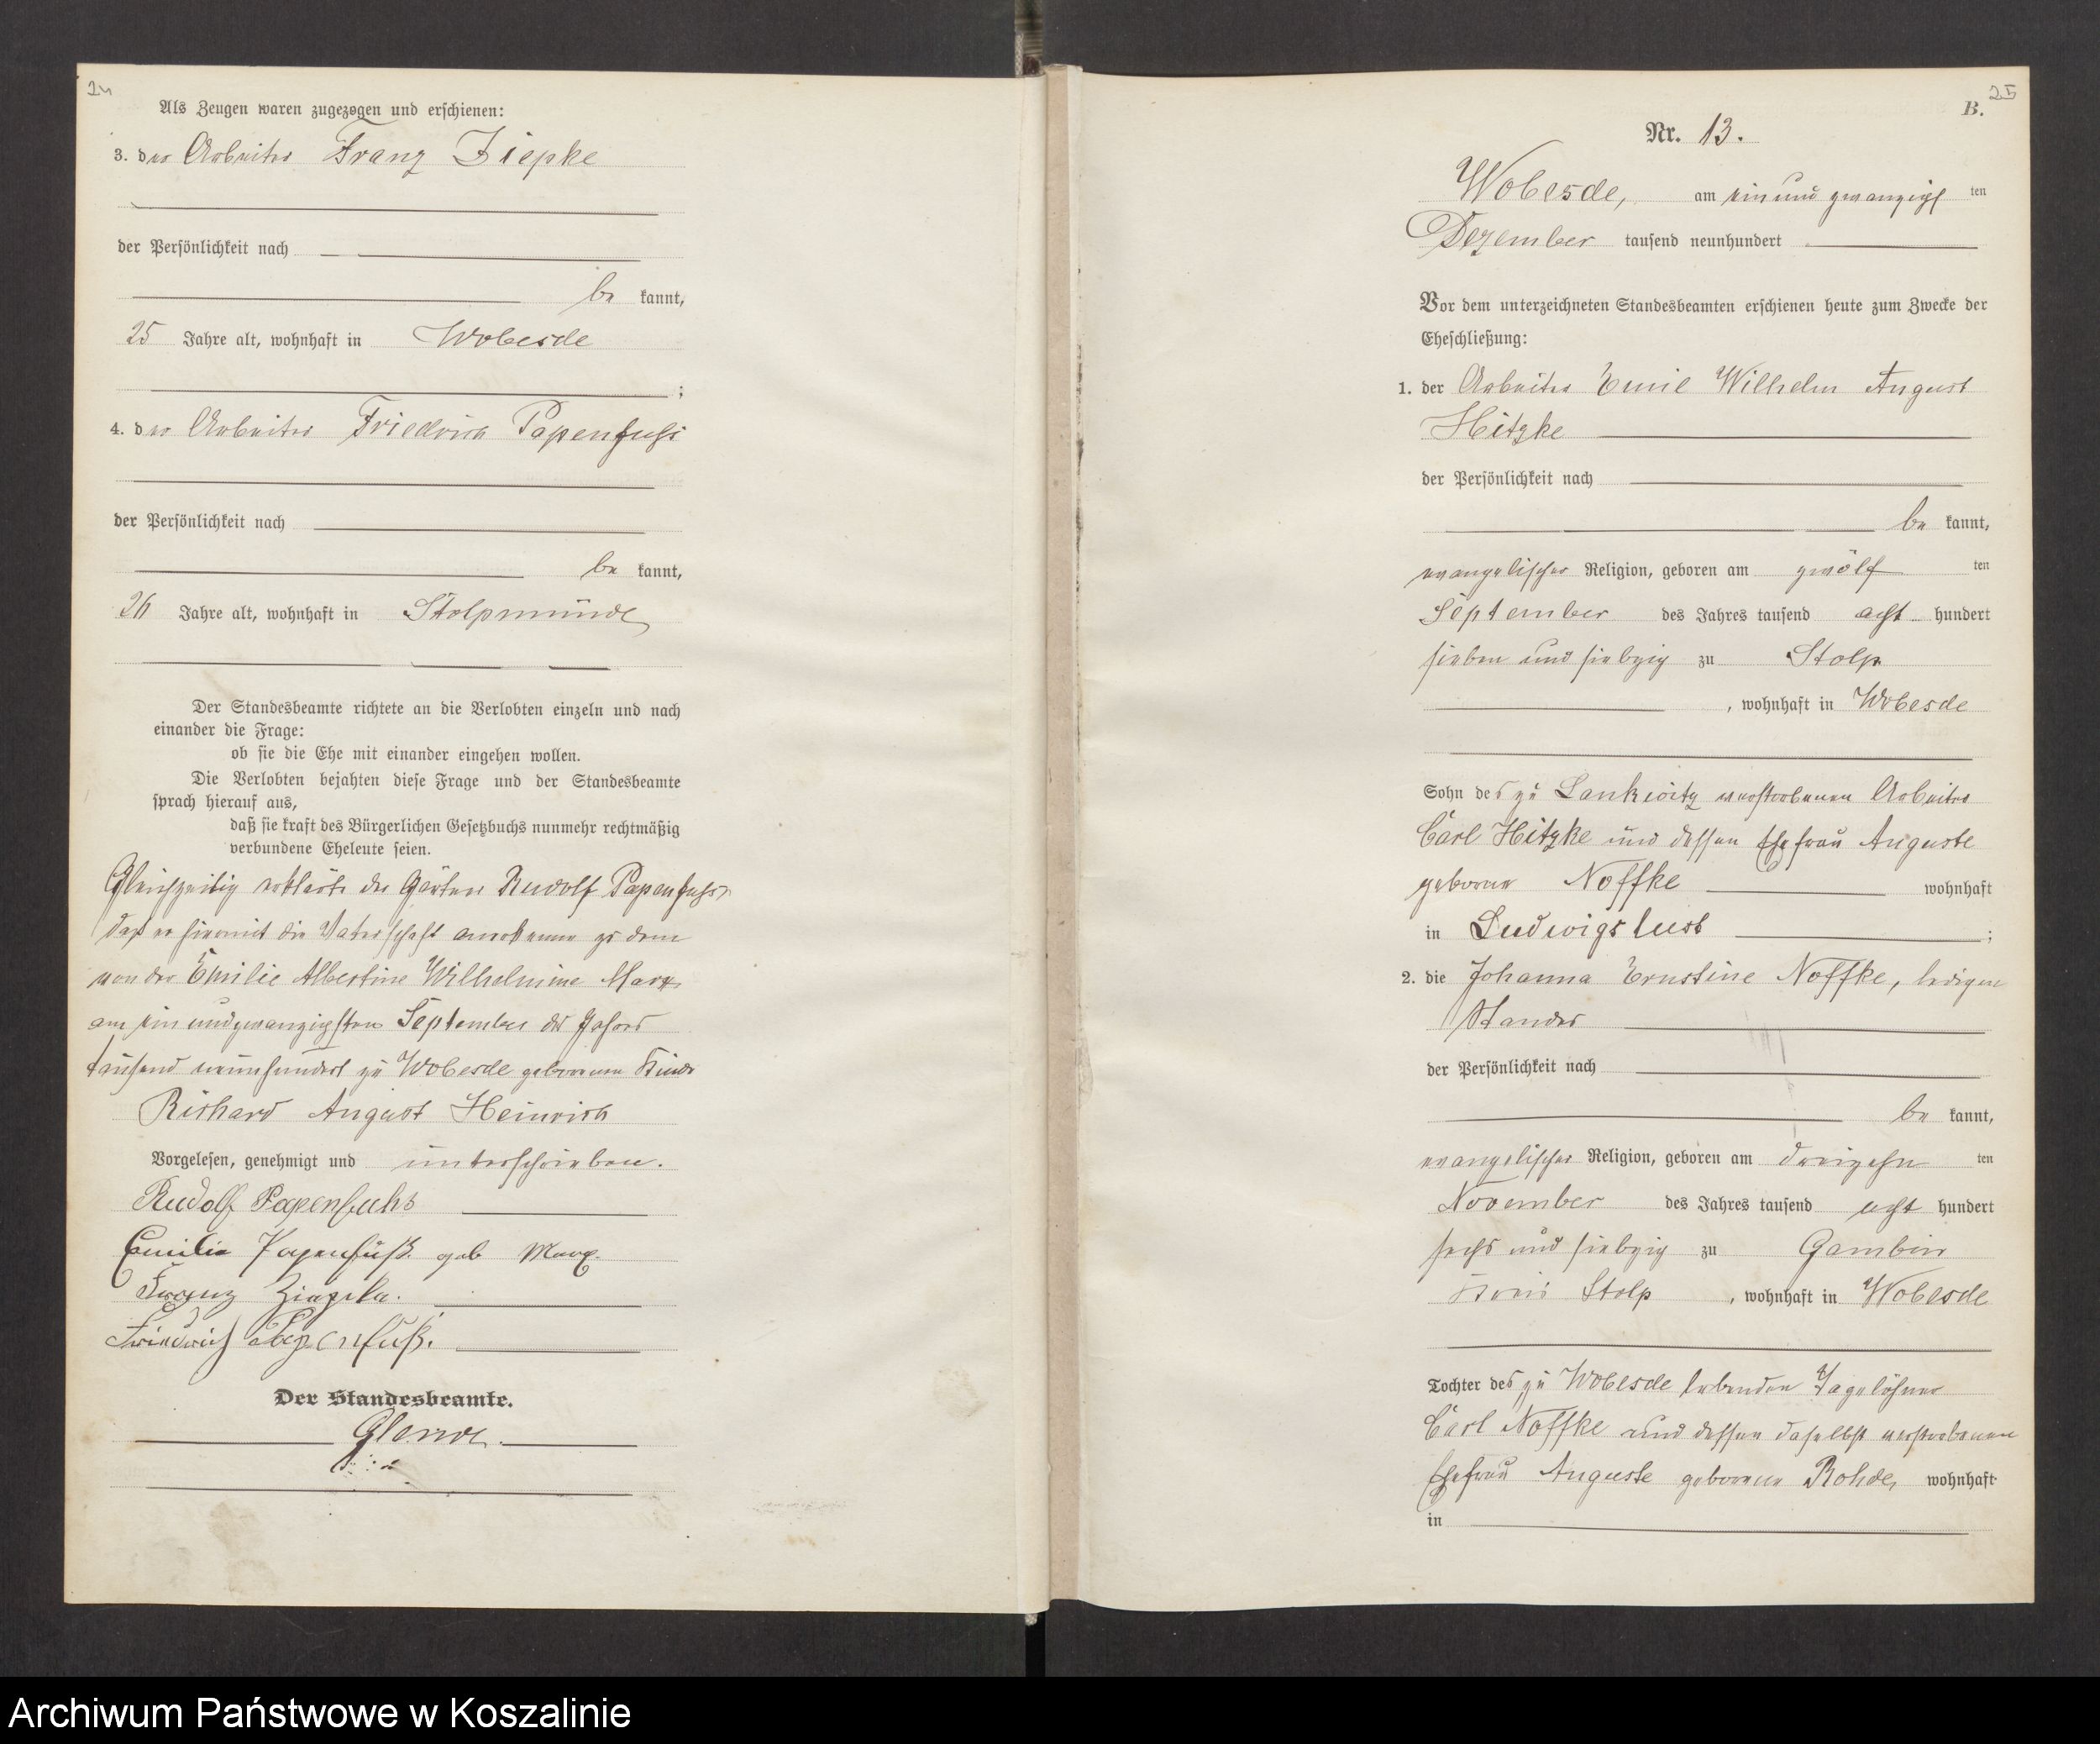 24
Als Zeugen waren zugezogen und erschienen:
3. der Arbeiter Franz Ziepke
der Persönlichkeit nach
be kannt,
25 Jahre alt, wohnhaft in Wobesde
;
4. der Arbeiter Friedrich Papenfuß
der Persönlichkeit nach
be kannt,
26 Jahre alt, wohnhaft in Stolpmünde
Der Standesbeamte richtete an die Verlobten einzeln und nach
einander die Frage:
ob sie die Ehe mit einander eingehen wollen.
Die Verlobten bejahten diese Frage und der Standesbeamte
sprach hierauf aus,
daß sie kraft des Bürgerlichen Gesetzbuchs nunmehr rechtmäßig
verbundene Eheleute seien.
Gleichzeitig erklärte der Gärtner Rudolf Papenfuhs,
daß er hiermit die Vaterschaft anerkenne zu dem
von der Emilie Albertine Wilhelmine Marx
am ein und zwanzigsten September des Jahres
tausend neunhundert zu Wobesde geborenen Kinde
Richard August Heinrich
Vorgelesen, genehmigt und unterschrieben.
Rudolf Papenfuhs
Emilie Papenfuß geb Marx.
Franz Ziepke.
Friedrich Papenfuß.
Der Standesbeamte.
25
B.
Nr. 13.
Wobesde, am ein und zwanzigs ten
Dezember tausend neunhundert
Vor dem unterzeichneten Standesbeamten erschienen heute zum Zwecke der
Eheschließung:
1. der Arbeiter Emil Wilhelm August
Hitzke
der Persönlichkeit nach
be kannt,
evangelischer Religion, geboren am zwölf ten
September des Jahres tausend acht hundert
sieben und siebzig zu Stolp
, wohnhaft in Wobesde
Sohn des zu Lankwitz verstorbenen Arbeiters
Carl Hitzke und dessen Ehefrau Auguste
geborene Noffke wohnhaft
in Ludwigslust ;
2. die Johanna Ernstine Noffke, ledigen
Standes
der Persönlichkeit nach
be kannt,
evangelischer Religion, geboren am dreizehn ten
November des Jahres tausend acht hundert
sechs und siebzig zu Gambin
Kreis Stolp , wohnhaft in Wobesde
Tochter des zu Wobesde lebenden Tagelöhner
Carl Noffke und dessen daselbst verstorbenen
Ehefrau Auguste geborene Rohde, wohnhaft
in
Archiwum Państwowe w Koszalinie